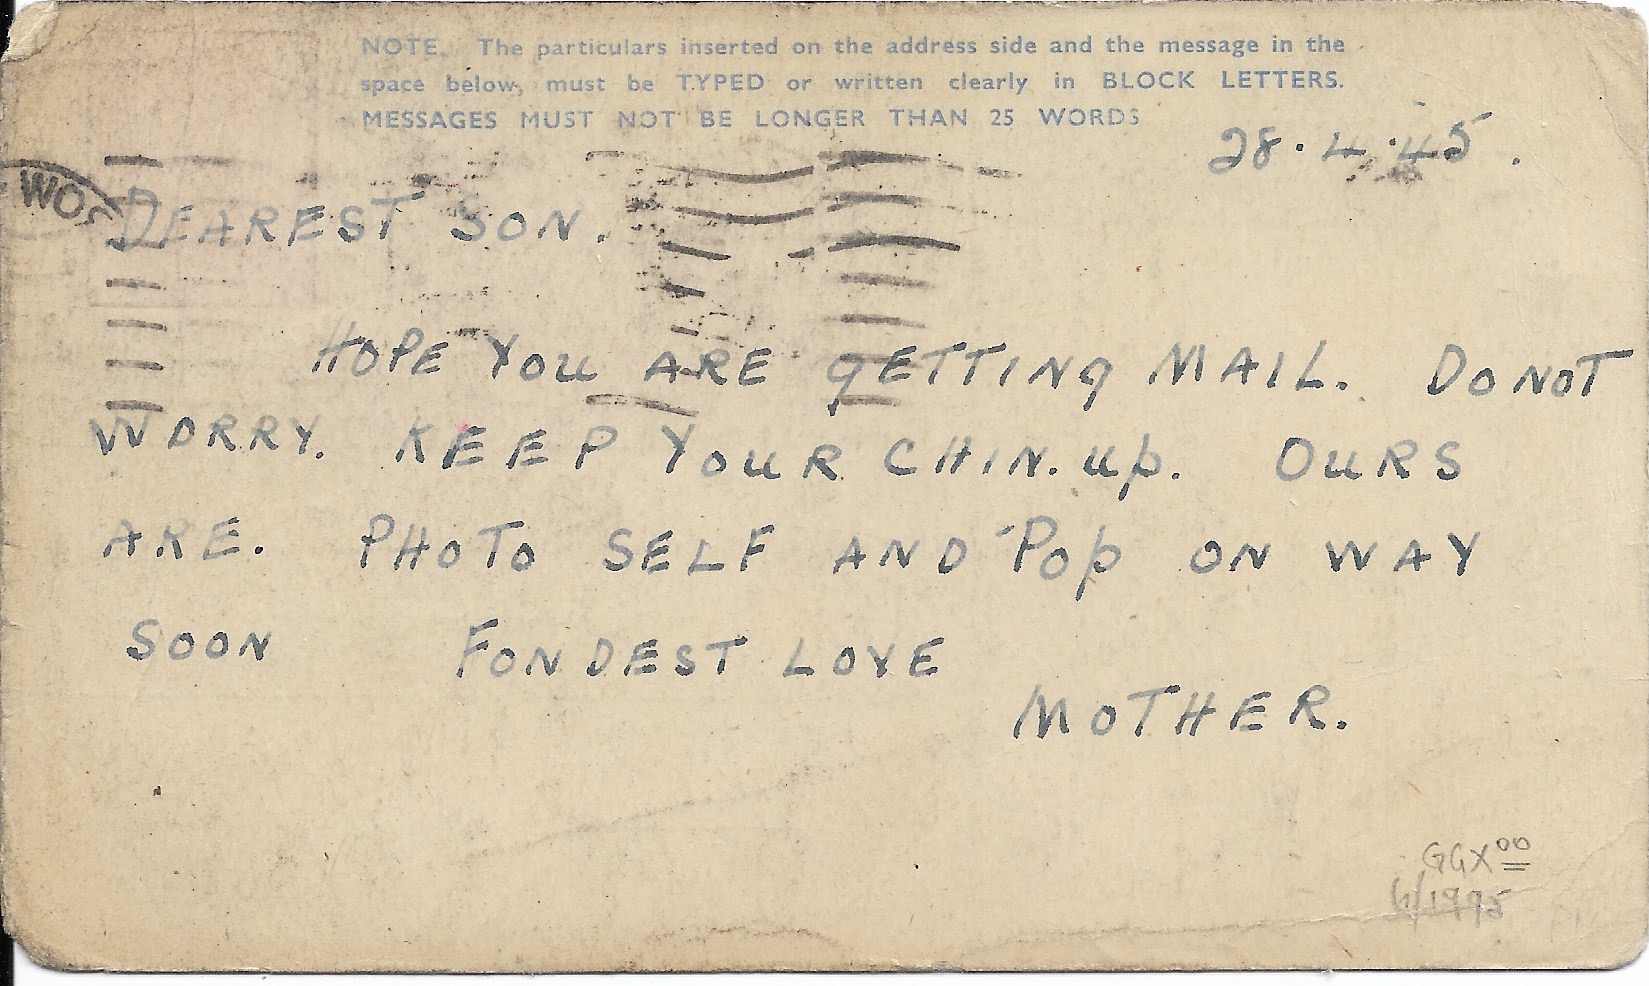 NOTE. The particulars inserted on the address side and the message in the
space below, must be TYPED or written clearly in BLOCK LETTERS.
MESSAGES MUST NOT BE LONGER THAN 25 WORDS
28.4.45.
DEAREST SON.
HOPE YOU ARE GETTING MAIL. DO NOT
WORRY. KEEP YOUR CHIN.UP. OURS
ARE. PHOTO SELF AND POP ON WAY
SOON FONDEST LOVE
MOTHER.
GGX00
6/1995